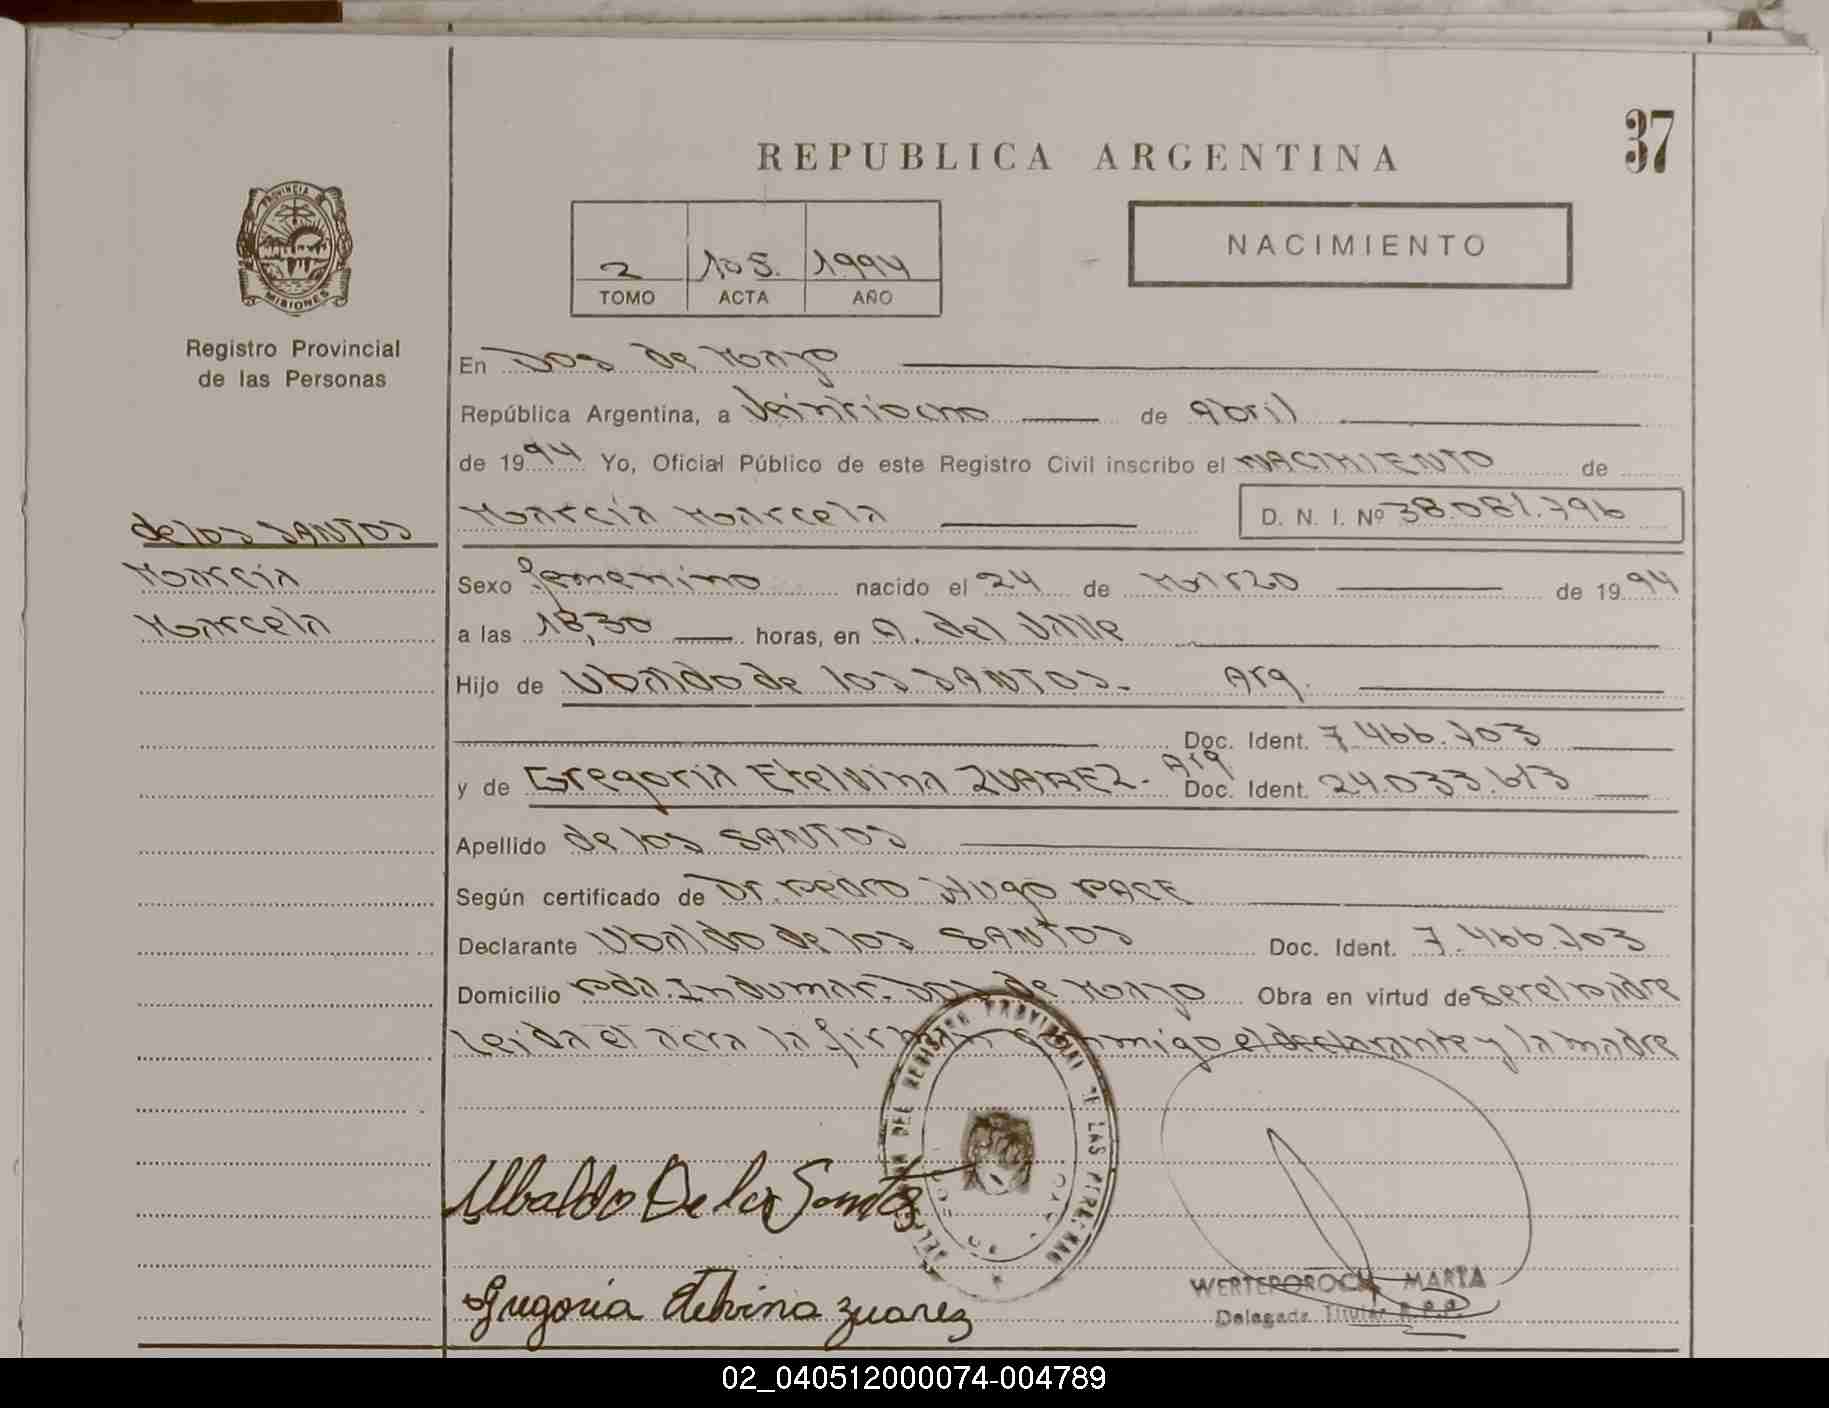 37
REPUBLICA ARGENTINA
PROVINCIA DE
MISIONES
Registro Provincial
de las Personas
2 105. 1994
TOMO ACTA AÑO
NACIMIENTO
En Dos de Mayo
República Argentina, a Veintiocho de Abril
de 1994 Yo, Oficial Público de este Registro Civil inscribo el NACIMIENTO de
de los SANTOS
Marcia
Marcela
Marcia Marcela D. N. I. Nº 38.081.796
Sexo femenino nacido el 24 de Marzo de 1994
a las 18,30 horas, en A. del Valle
Hijo de Ubaldo de los SANTOS.- Arg.
Doc. Ident. 7.466.703
y de Gregoria Etelvina ZUAREZ- Arg Doc. Ident. 24.033.613
Apellido de los SANTOS
Según certificado de Dr. Pedro Hugo PACE
Declarante Ubaldo de los SANTOS Doc. Ident. 7.466.703
Domicilio Pda. Indumar. Dos de Mayo Obra en virtud de ser el padre
Leida el acta la firman conmigo el declarante y la madre
DEL REGISTRO PROVINCIAL DE LAS PERSONAS
Ubaldo De los Santos
Gregoria Etelvina Zuarez
WERTEPOROCH MARTA
Delegada Titular R.P.P.
02_040512000074-004789